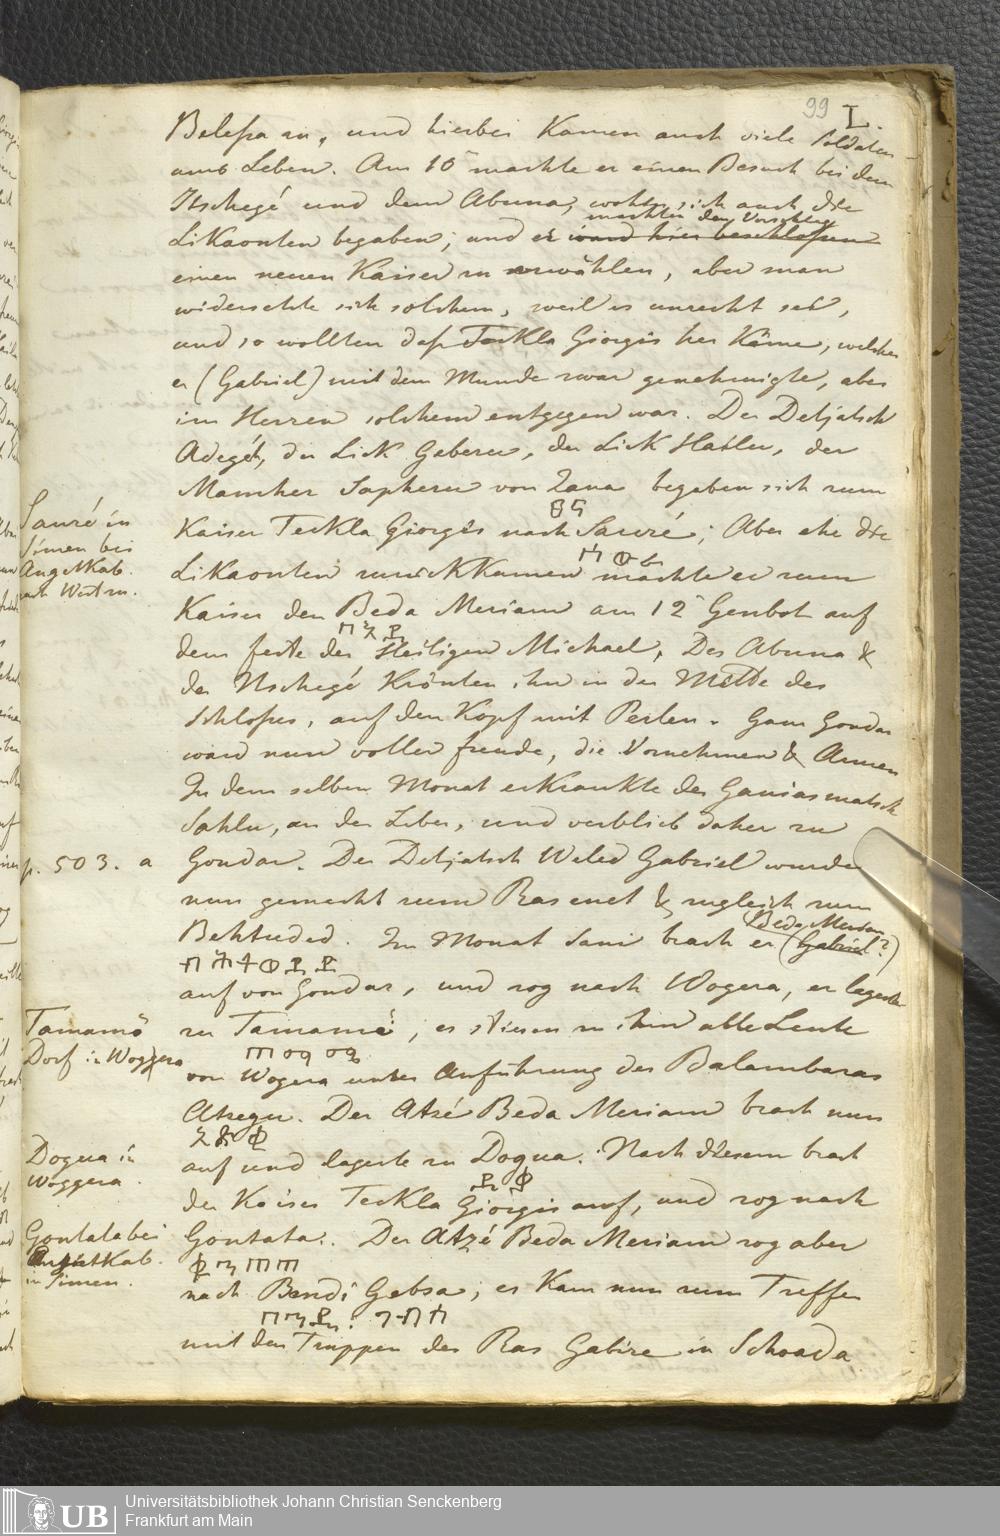 99 L.
Belessa an, und hierbei Kamen auch viele Soldaten
ums Leben. Am 10 machte er einen Besuch bei dem
Itschegé und dem Abuna, wohin sich auch die
machten den Vorschlag
LiKaonten begaben; und es ward hier beschlossen
einen neuen Kaiser zu erwählen, aber man
widersetzte sich solchem, weil es unrecht sei,
und so wollten daß TecKla Giorgis her Käme, welches
er (Gabriel) mit dem Munde zwar genehmigte, aber
im Herzen solchem entgegen war. Der Detjatsch
Adegeh, der LicK Geberu, der LicK Hailu, der
Mamher Sapheru von Zana begaben sich zum
ፀና
Kaiser TecKla Giorgis nach Sauré; Aber ehe die
Sauré in
Simen bei
AngetKab.
nach Westen.
ሳዑሬ
LiKaonten zurückKamen machte er zum
Kaiser den Beda Meriam am 12 Genbot auf
በእደ
dem feste des Heiligen Michael, Der Abuna &
der Itschegé Krönten ihn in der Mitte des
Schloßes, auf den Kopf mit Perlen. Ganz Gondar
ward nun voller freude, die Vornehmen & Armen
In dem selben Monat erKrankte der Ganiasmatsch
Sahlu, an der Leber, und verblieb daher zu
p. 503. a
Gondar. Der Detjatsch Weled Gabriel wurde
nun gemacht zum Ras enet & zugleich zum
Beda Meriam
Behtuded. Im Monat Sani brach er (Gabriel?)
auf von Gondar, und zog nach Wogera, er lagerte
Tamamo
Dorf in Woggera
zu Tamamo, es stiesen zu ihm alle Leute
von Wogera unter Anführung des Balambaras
Atsegu. Der Atzé Beda Meriam brach nun
Dogua in
Woggera.
auf und lagerte zu Dogua. Nach diesem brach
der Kaiser TecKla Giorgis auf, und zog nach
Gontatabei
AngetKab.
in Simen.
Gontata. Der Atzé Beda Meriam zog aber
nach Bendi Gebsa; es Kam nun zum Treffen
mit den Truppen des Ras Gabire in Schoada
UB
Universitätsbibliothek Johann Christian Senckenberg
Frankfurt am Main